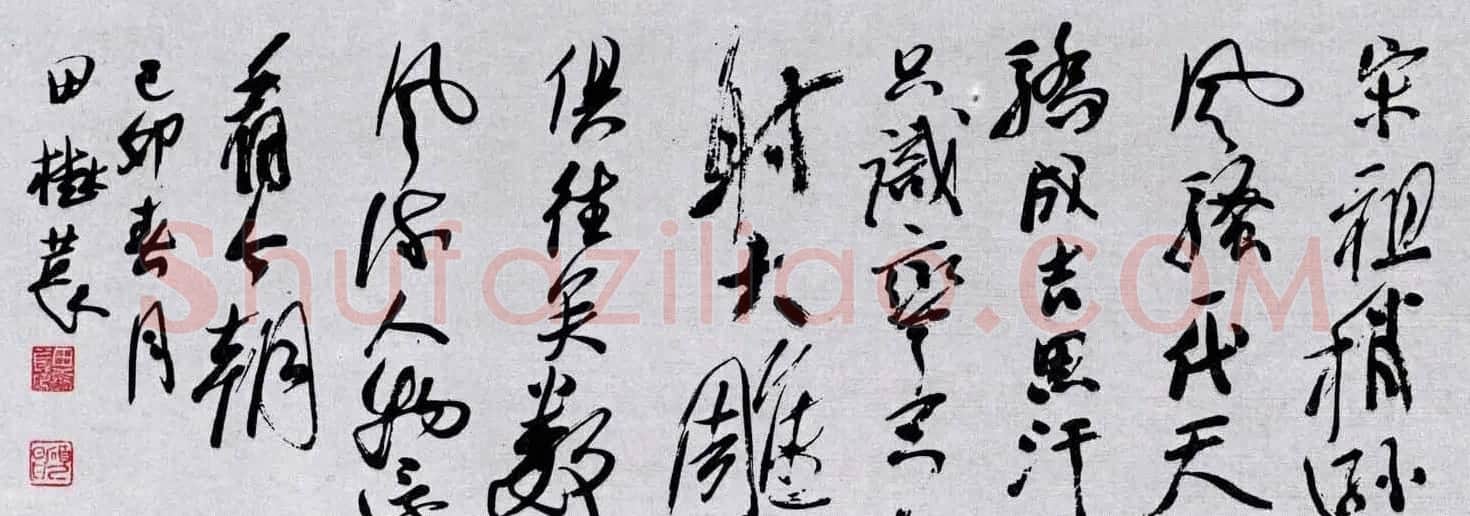 宋祖稍遜
风騷一代天
驕成吉思汗
只識彎弓
射大雕
俱往矣數
风流人物还
看今朝
己卯春月
田樹萇
Shufaziliao.com